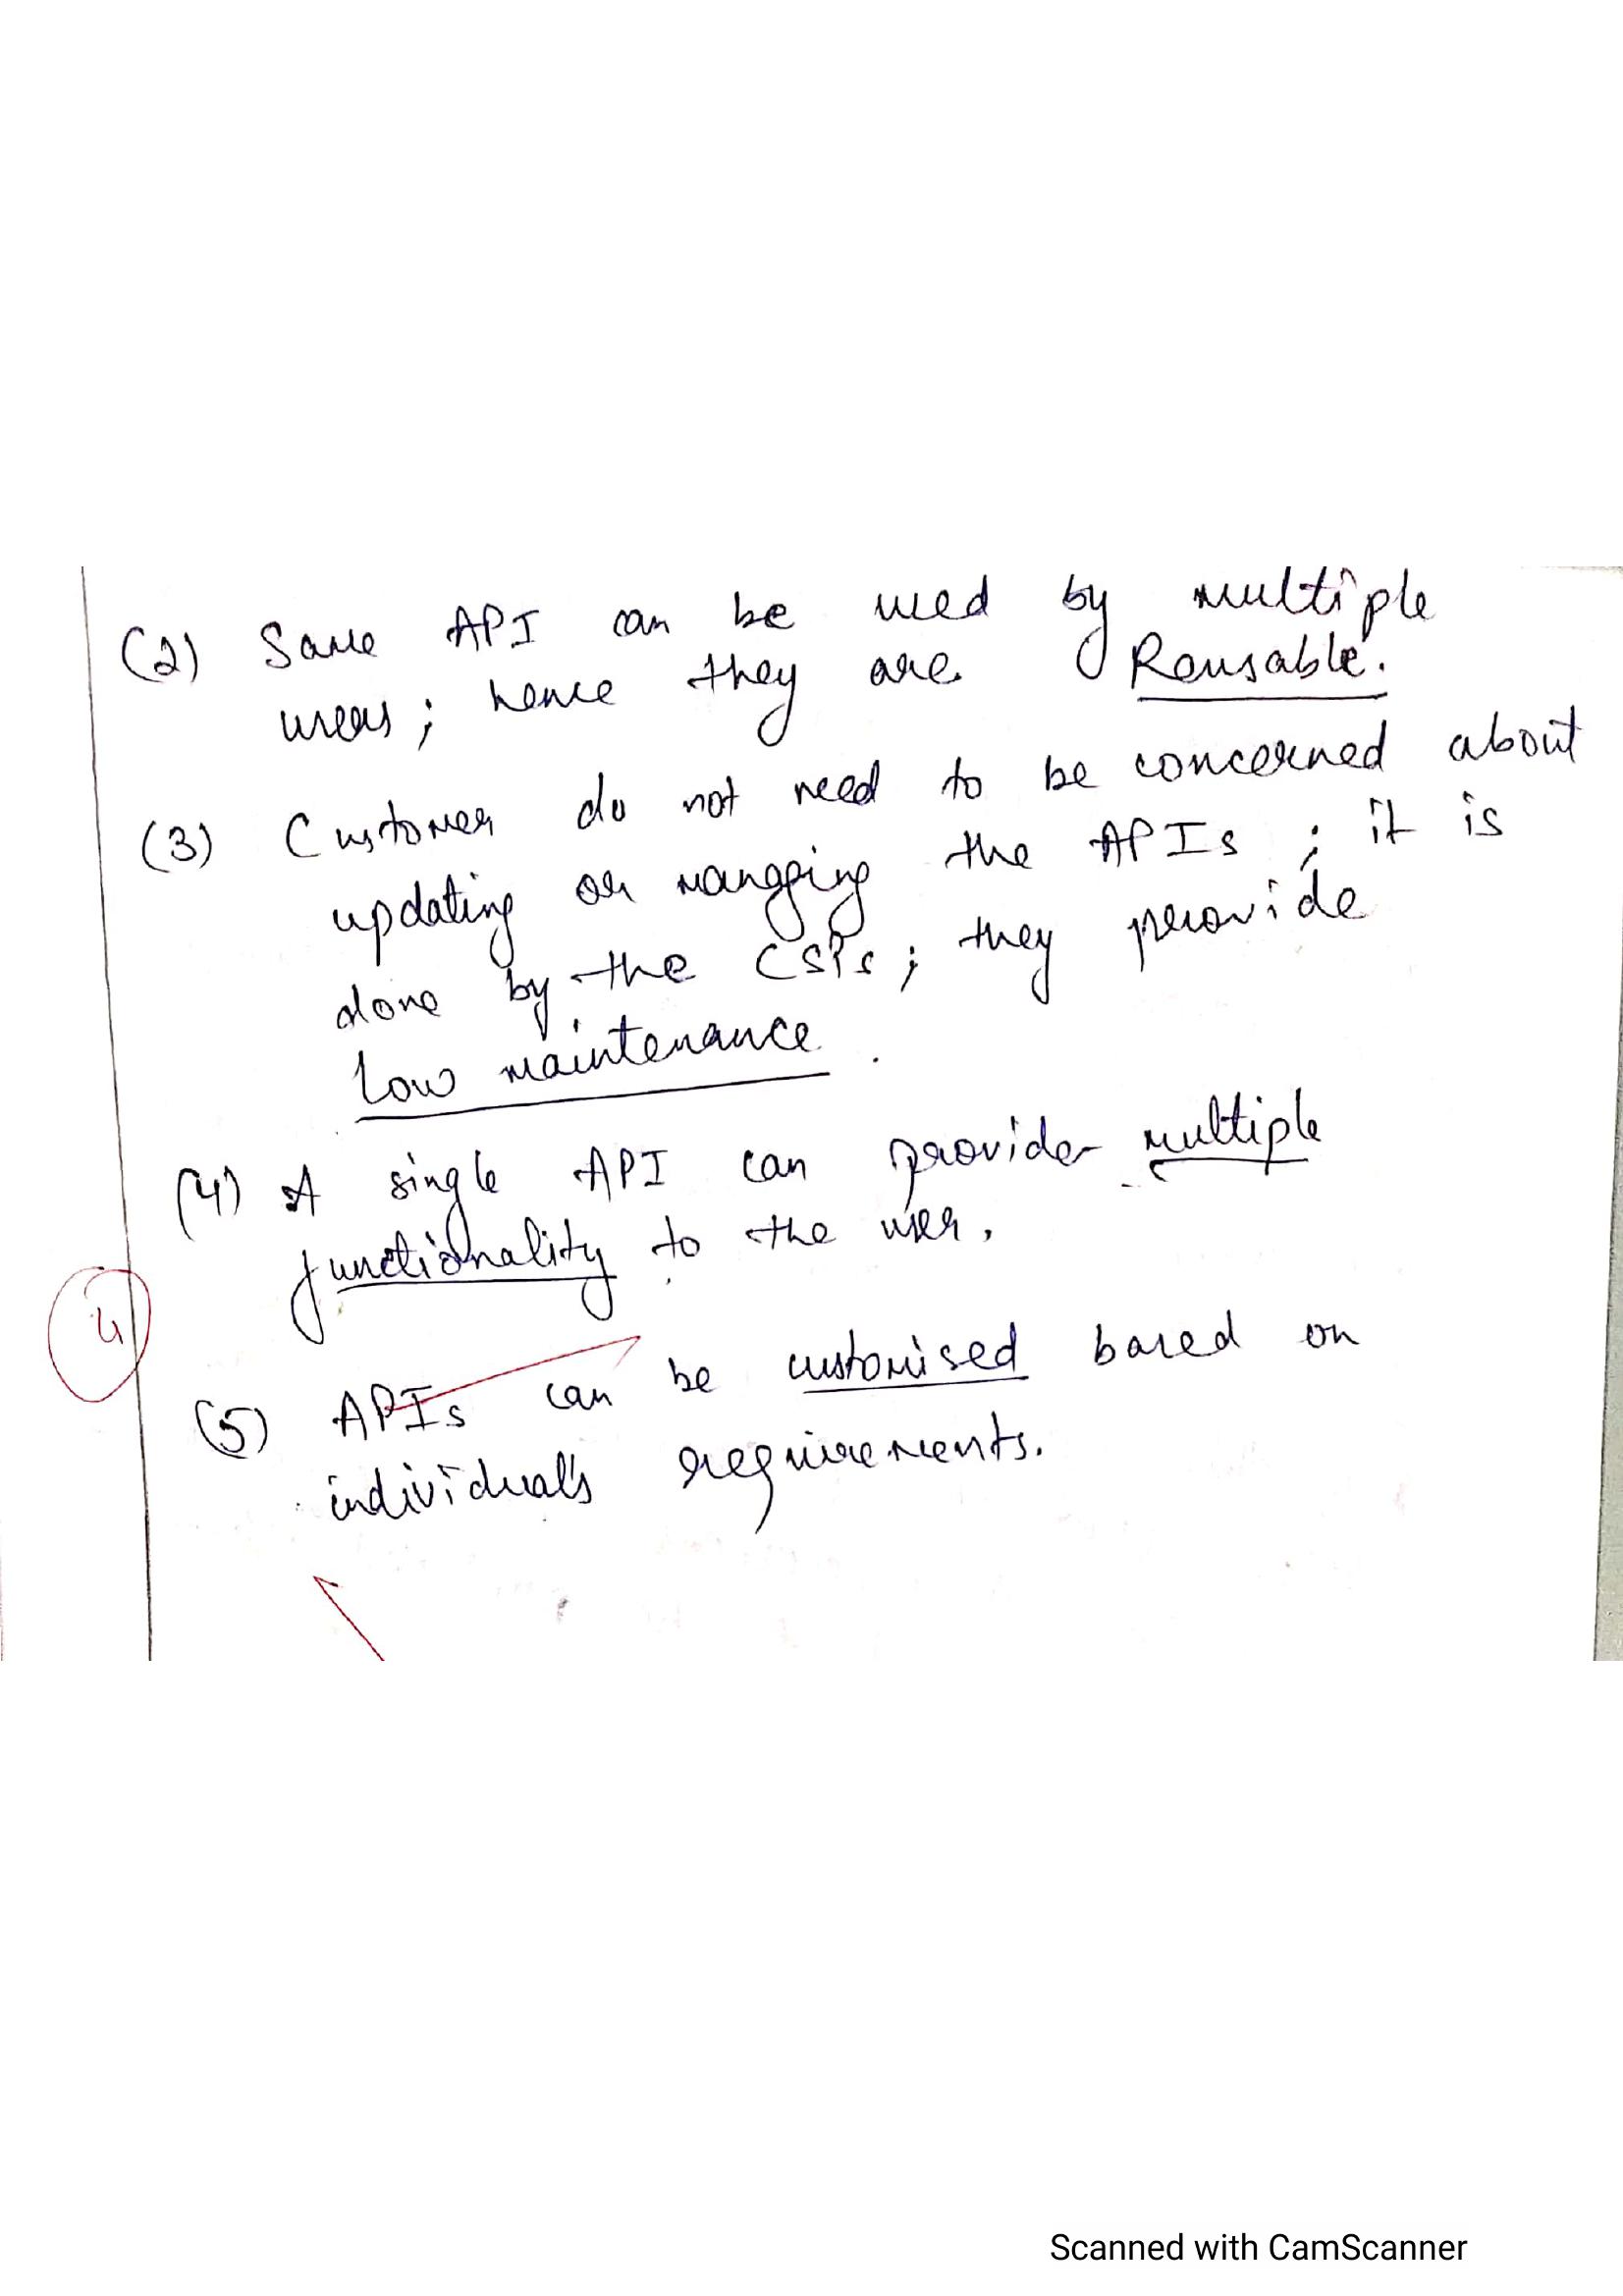 (2) Same API can be used by multiple
users; hence they are Reusable.
(3) Customer do not need to be concerned about
updating or mangging the APIs; it is
done by the CSPs; they provide
Low maintenance.
(4) A single API can provider multiple
functionality to the user.
4
(5) APIs can be customised based on
individuals requirements.
Scanned with CamScanner